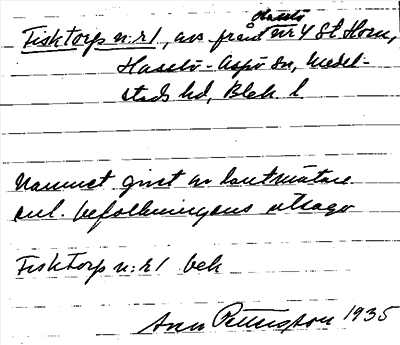 Fisktorp n:r 1, avs. från Hasslö nr 4 St. Horn,
Hasslö-Aspö sn, Medel-
stads hd, Blek l.
Namnet givet av lantmätare
enl. befolkningens utsago
Fisktorp n:r 1 bek
Pettersson 1935